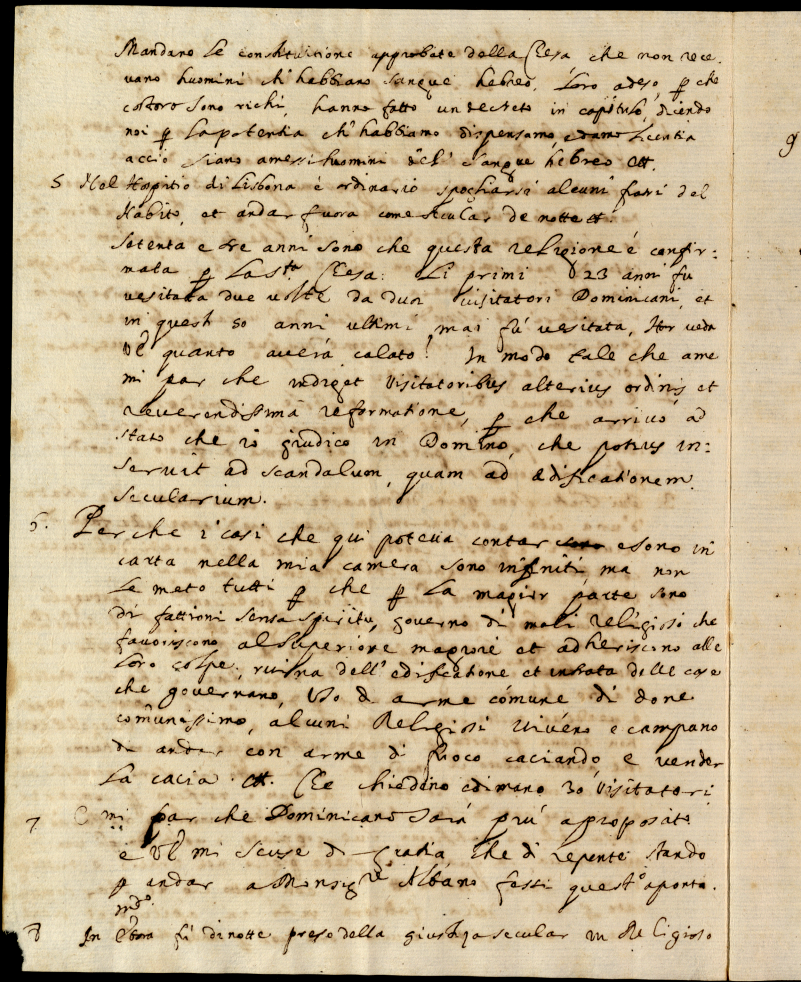 Mandano le constituitione approbate della Clesa, che non rece-
vano huomini ch' habbiano sangue hebreo, loro adeso, ꝑ che
costoro sono richi, hanno fatto un decreto in capitulo, dicendo
noi ꝑ la potentia ch' habbiamo dispensamo, e damo licentia
accio siano amessi huomini del sangue hebreo &tt.
5 Nel Hospitio di Lisbona è ordinario spogliarsi alcuni frati del
Habito, et andar fuora come secular de notte &tt.
Setenta e tre anni sono che questa religione é confir:
mata ꝑ la Sta Clesa: Li primi 23 anni fu
vesitata due volte da duoi visitatori Dominicani, et
in questi 50 anni ultimi mai fu vesitata, veda
quanto averá calato! In modo tale che ame
mi par che indiget visitatoribus alterius ordinis et
reverendissima reformatione, ꝑ che arrivó ad
stato che io giudico in Domino, che potius in:
servit ad scandalum, quam ad ædificationem
secularium.
6. Perche i casi che qui poteva contar sono e sono in
carta nella mia camera sono infiniti ma non
le meto tutti ꝑ che ꝑ la magior parte sono
di fattioni sensa spiritu, governo di mali religiosi che
favoriscono al Superiore magiore et adheriscono alle
loro colpe; ruina dell' edificatione et intrata delle case
che governano, Uso d arme cómune di done
comunissimo, alcuni Religiosi vivéno e campano
de andar con arme di fuoco caciando, e vender
la cacia &tt. Che chiedeno e dimano Visitatori
7 E mi par che Dominicano sará piú aproposito
e mi scuse di gratia che di repente stando
ꝑ andar a Monsigre Albano festi quest'o aponta-
mdo.
8 In Evora fu di notte preso della giustiza secular un Religioso
9